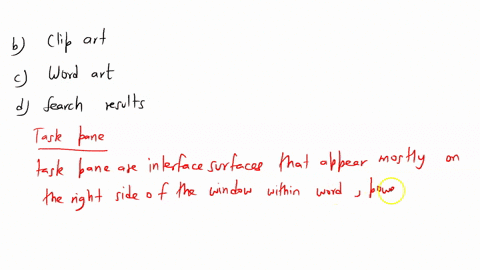 b) Clip art
c) Word art
d) Search results
Task pane
task pane are interface surfaces that appear mostly on
the right side of the window within word, powe